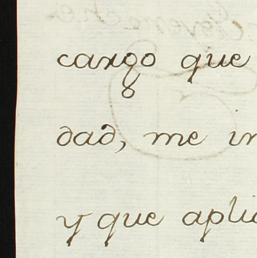 cargo que
dad, me in
y que apli